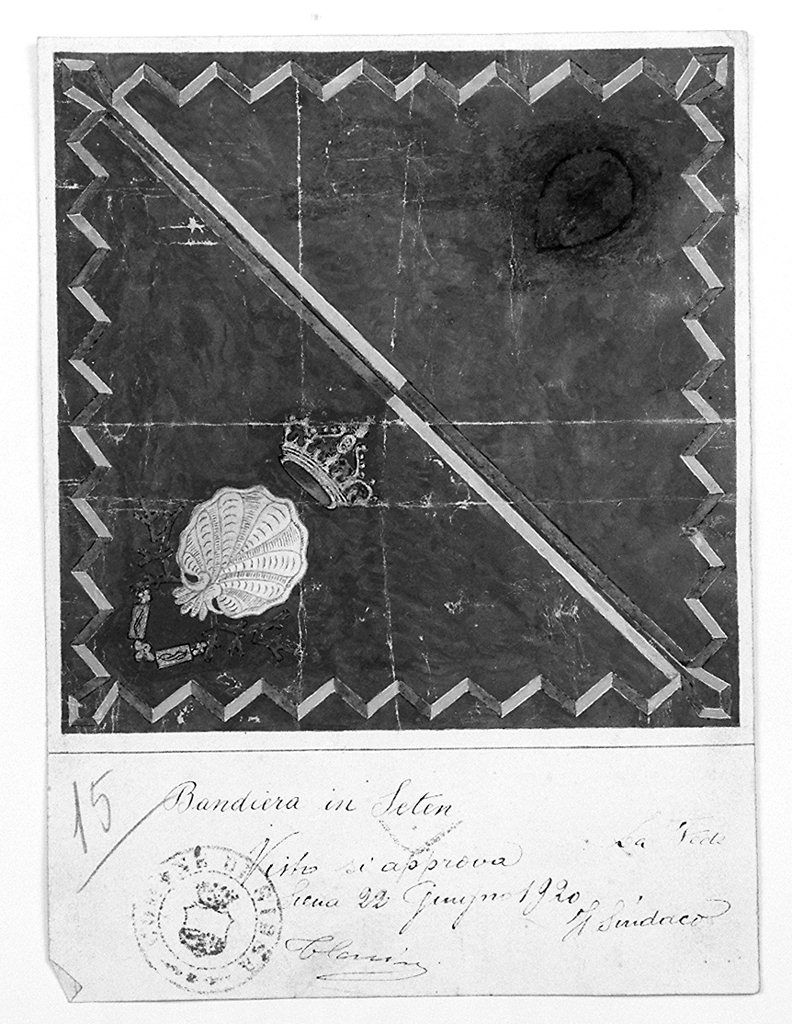 15
Bandiera in Seten
La Vede
Visto si approva
Siena 22 Giugno 1920
Il Sindaco
COMUNE DI SIENA